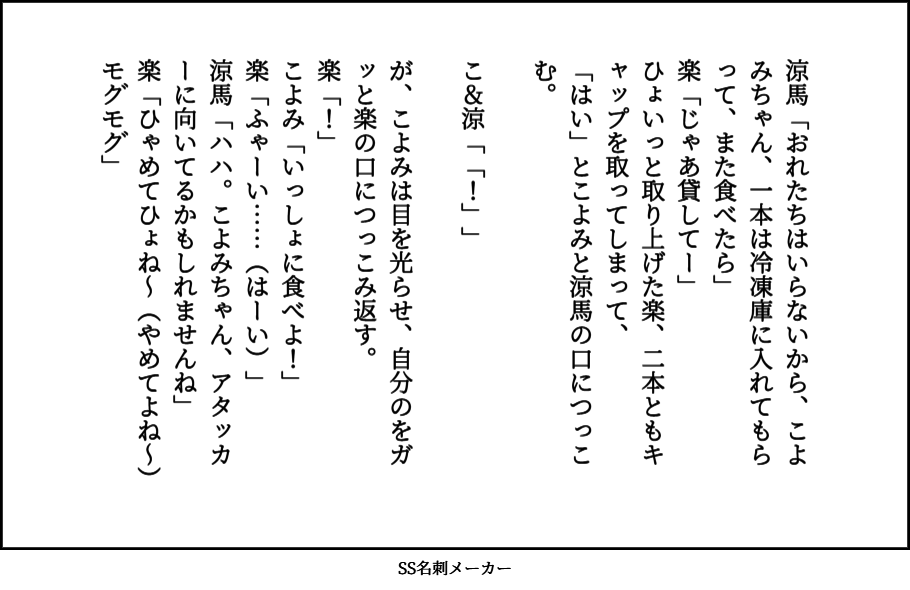 涼馬「おれたちはいらないから、こよ
みちゃん、一本は冷凍庫に入れてもら
って、また食べたら」
楽「じゃあ貸してー」
ひょいっと取り上げた楽、二本ともキ
ャップを取ってしまって、
「はい」とこよみと涼馬の口につっこ
む。
こ&涼「「！」」
が、こよみは目を光らせ、自分のをガ
ッと楽の口につっこみ返す。
楽「！」
こよみ「いっしょに食べよ！」
楽「ふゃーい……（はーい）」
涼馬「ハハ。こよみちゃん、アタッカ
ーに向いてるかもしれませんね」
楽「ひゃめてひょね〜（やめてよね〜）
モグモグ」
SS名刺メーカー